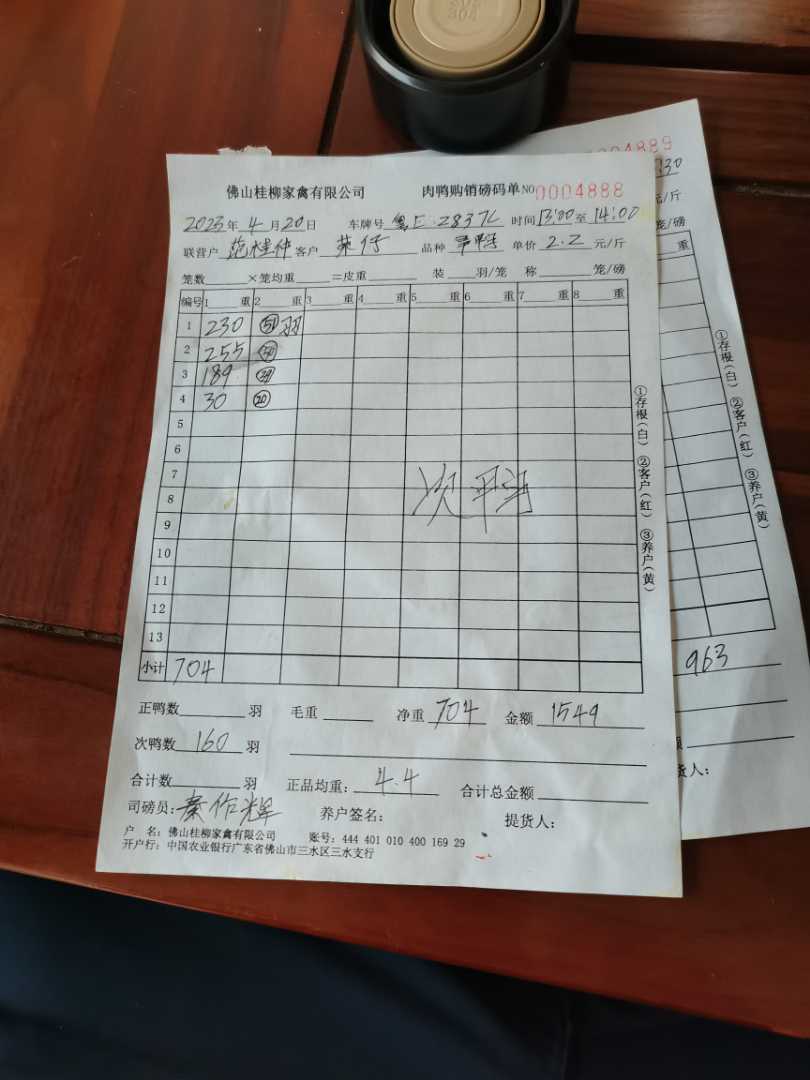 佛山桂柳家禽有限公司 肉鸭购销磅码单 NO 0004888
2023年 4月20日 车牌号 粤E·2837L 时间 13:00 至 14:00
联营户 客户 品种 单价 2.2 元/斤
笼数 ×笼均重 =皮重 装 羽/笼 称 笼/磅
编号 1 重 2 重 3 重 4 重 5 重 6 重 7 重 8 重
1 230 50羽
2 255
3 189
4 30 20
5
6
7
8
次平鸭
9
10
11
12
13
小计 704
正鸭数 羽 毛重 净重 704 金额 1549
次鸭数 160 羽
合计数 羽 正品均重: 4.4 合计总金额
司磅员: 秦作辉 养户签名: 提货人:
户 名: 佛山桂柳家禽有限公司 账号: 444 401 010 400 169 29
开户行: 中国农业银行广东省佛山市三水区三水支行
①存根(白) ②客户(红) ③养户(黄)
4889
元/斤
笼/磅
重
①存根(白) ②客户(红) ③养户(黄)
963
货人: